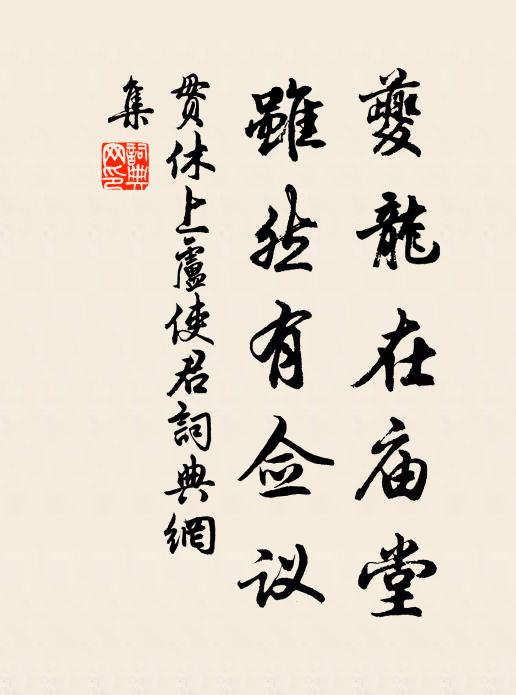 夔龍在庙堂
雖然有佥议
貫休上盧使君詞典網
集
詞典網印